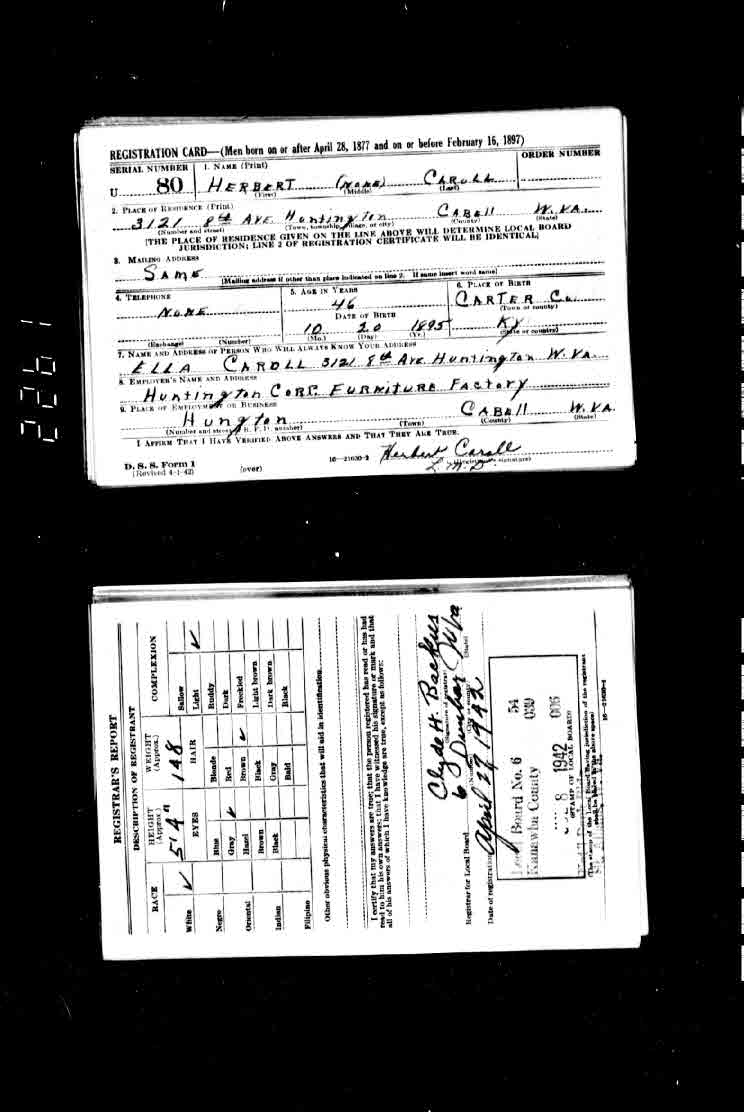 REGISTRATION CARD—(Men born on or after April 28, 1877 and on or before February 16, 1897)
SERIAL NUMBER 1. NAME (Print) ORDER NUMBER
U 80 HERBERT (NONE) CAROLL
(First) (Middle) (Last)
2. PLACE OF RESIDENCE (Print)
3121 8th AVE. Huntington CABEll W.VA.
(Number and street) (Town, township, village, or city) (County) (State)
[THE PLACE OF RESIDENCE GIVEN ON THE LINE ABOVE WILL DETERMINE LOCAL BOARD
JURISDICTION; LINE 2 OF REGISTRATION CERTIFICATE WILL BE IDENTICAL]
3. MAILING ADDRESS
SAME
[Mailing address if other than place indicated on line 2. If same insert word same]
4. TELEPHONE 5. AGE IN YEARS 6. PLACE OF BIRTH
NONE 46 CARTER Co.
DATE OF BIRTH (Town or county)
10 20 1895 Ky
(Exchange) (Number) (Mo.) (Day) (Yr.) (State or country)
7. NAME AND ADDRESS OF PERSON WHO WILL ALWAYS KNOW YOUR ADDRESS
ELLA CAROLL 3121 8th Ave Huntington W.Va.
8. EMPLOYER'S NAME AND ADDRESS
Huntington CORP. FURNITURE FActory
9. PLACE OF EMPLOYMENT OR BUSINESS
Hungton CABEll W.VA.
(Number and street or R. F. D. number) (Town) (County) (State)
I AFFIRM THAT I HAVE VERIFIED ABOVE ANSWERS AND THAT THEY ARE TRUE.
D. S. S. Form 1
(Revised 4-1-42) (over) 16—21630-2 Herbert Caroll
(Registrant's signature)
2261
REGISTRAR'S REPORT
DESCRIPTION OF REGISTRANT
RACE HEIGHT (Approx.) WEIGHT (Approx.) COMPLEXION
5'4" 148
White ✓ EYES HAIR Sallow
Light ✓
Negro Blue Blonde Ruddy
Gray ✓ Red Dark
Oriental Hazel Brown ✓ Freckled
Brown Black Light brown
Indian Black Gray Dark brown
Bald Black
Filipino
Other obvious physical characteristics that will aid in identification
I certify that my answers are true; that the person registered has read or has had
read to him his own answers; that I have witnessed his signature or mark and that
all of his answers of which I have knowledge are true, except as follows:
Clyde H. Backus
(Signature of registrar)
Registrar for Local Board 6 Dunbar W Va
(Number) (City or county) (State)
Date of registration April 27, 1942
Local Board No. 6 54
Kanawha County 039
8 1942 006
(STAMP OF LOCAL BOARD)
(The stamp of the Local Board having jurisdiction of the registrant
shall be placed in the above space)
16—21630-1